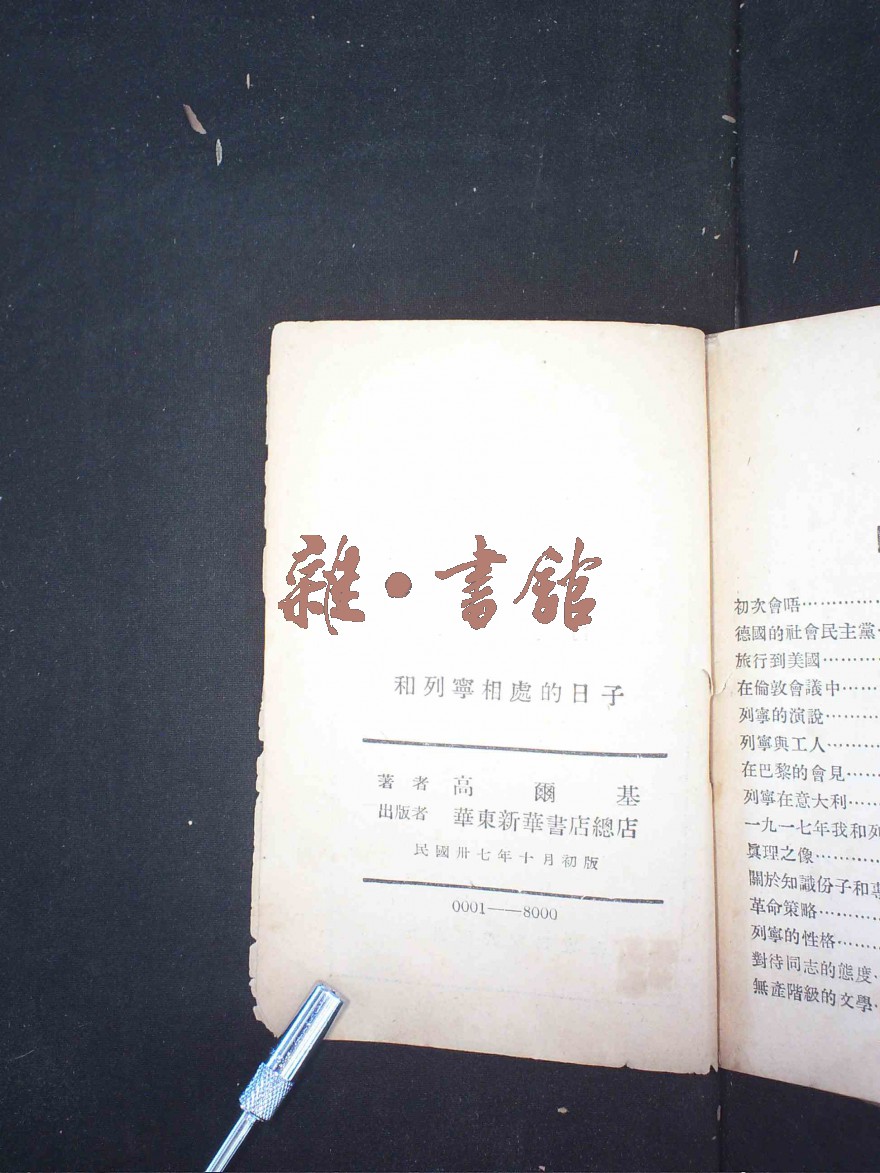 雜·書館
和列寧相處的日子
著者 高爾基
出版者 華東新華書店總店
民國卅七年十月初版
0001——8000
初次會晤…………
德國的社會民主黨
旅行到美國………
在倫敦會議中……
列寧的演說………
列寧與工人………
在巴黎的會見……
列寧在意大利……
一九一七年我和列
眞理之像…………
關於知識份子和專
革命策略…………
列寧的性格………
對待同志的態度
無產階級的文學